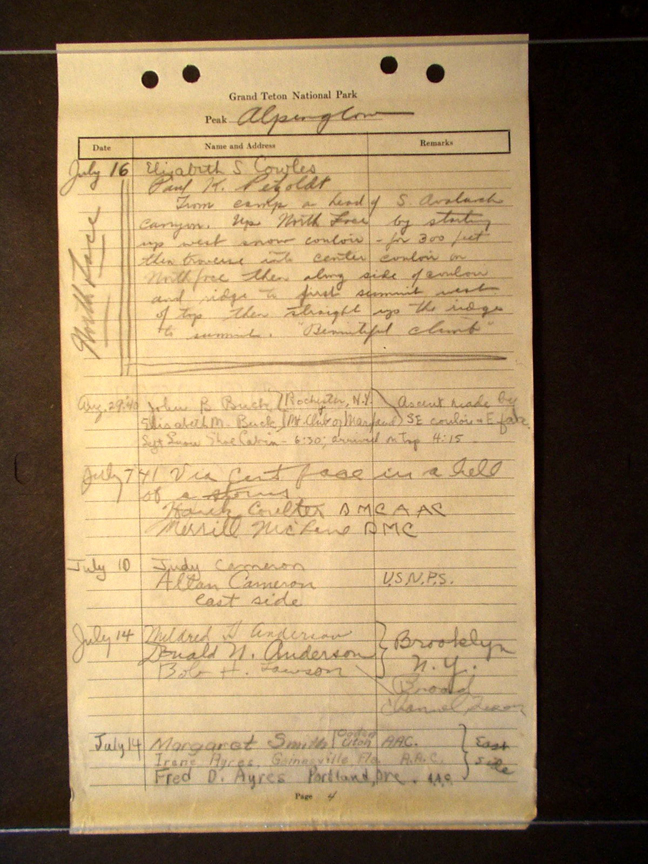 Grand Teton National Park
Peak Alpenglow
Date Name and Address Remarks
July 16 Elizabeth S Cowles
Paul K. Petzoldt
From camp a head of S. Avalanch
Canyon. Up North Face by starting
up west snow couloir - for 300 feet
then traverse into center couloir on
North face then along side of couloir
and ridge to first summit west
of top then straight up the ridge
to summit. "Beautiful climb"
North Face
Aug. 29 '40 John B Buck (Rochester, N.Y. Ascent made by
Elizabeth M. Buck (Mt. Club of Maryland) SE couloir & E face.
Shoe Cabin - 6:30; arrived on Top 4:15
July 7 41 Via face in a hell
of a storm
Coulter DMC AAC
Merrill McLane DMC
July 10 Judy Cameron
Allan Cameron U.S.N.P.S.
east side
July 14 Mildred Anderson Brooklyn
Donald N. Anderson N.Y.
Bob H. Lawson Broad
Channel
July 14 Margaret Smith Utah AAC. East
Irene Ayres, Gainesville, Fla. A.A.C. side
Fred D. Ayres Portland, Ore. AAC
Page 4